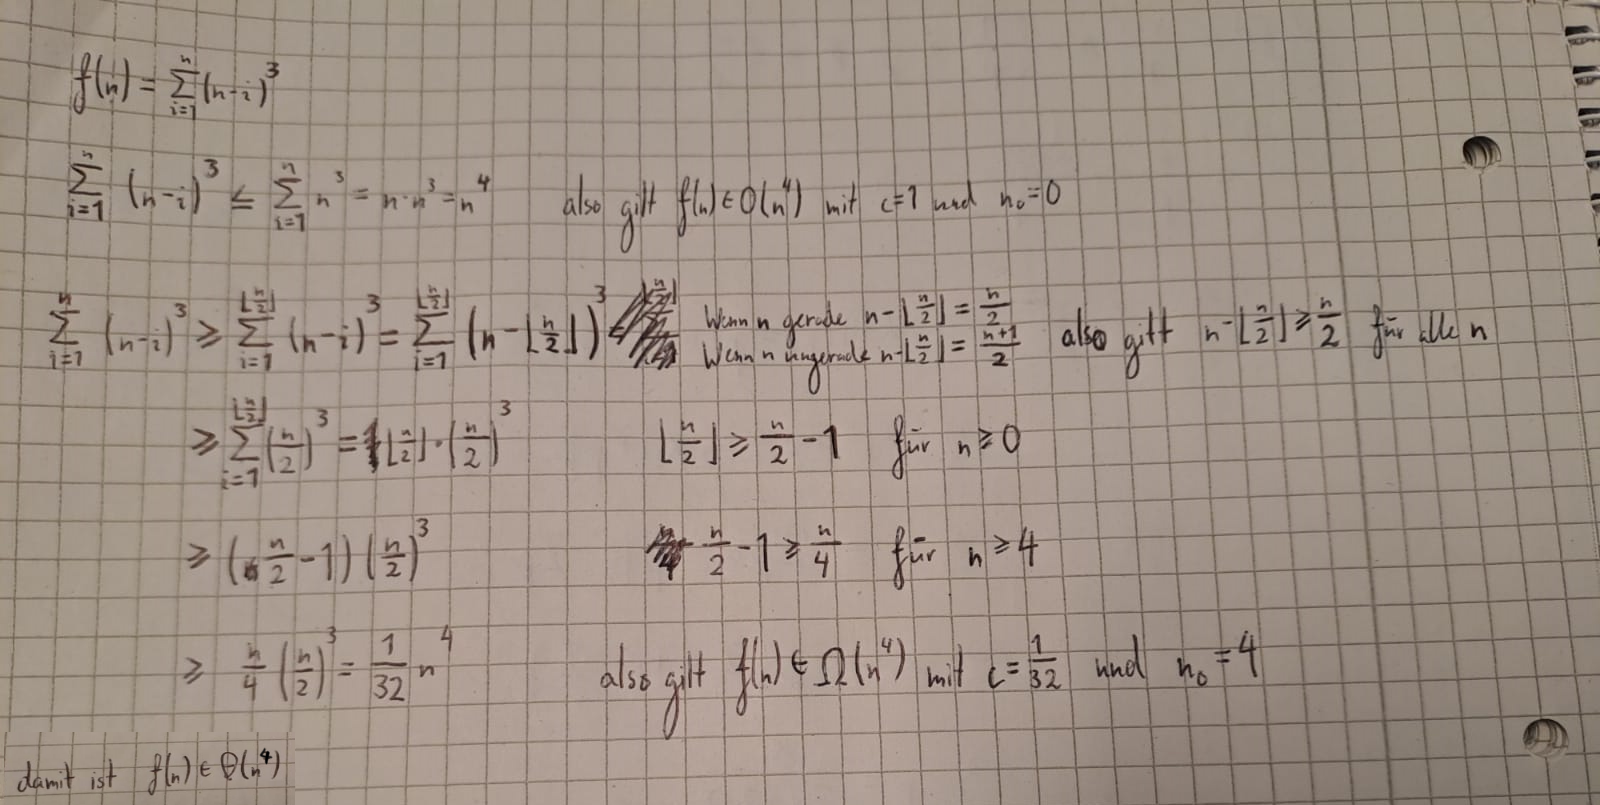 f(n) = ∑_{i=1}^{n} (n-i)^3
∑_{i=1}^{n} (n-i)^3 ≤ ∑_{i=1}^{n} n^3 = n·n^3 = n^4 also gilt f(n) ∈ O(n^4) mit c=1 und n_0=0
∑_{i=1}^{n} (n-i)^3 ≥ ∑_{i=1}^{⌊n/2⌋} (n-i)^3 = ∑_{i=1}^{⌊n/2⌋} (n-⌊n/2⌋)^3 Wenn n gerade n-⌊n/2⌋ = n/2
Wenn n ungerade n-⌊n/2⌋ = (n+1)/2 also gilt n-⌊n/2⌋ ≥ n/2 für alle n
≥ ∑_{i=1}^{⌊n/2⌋} (n/2)^3 = ⌊n/2⌋·(n/2)^3 ⌊n/2⌋ ≥ n/2 - 1 für n ≥ 0
≥ (n/2 - 1) (n/2)^3 n/2 - 1 ≥ n/4 für n ≥ 4
≥ n/4 (n/2)^3 = 1/32 n^4 also gilt f(n) ∈ Ω(n^4) mit c = 1/32 und n_0 = 4
damit ist f(n) ∈ Θ(n^4)